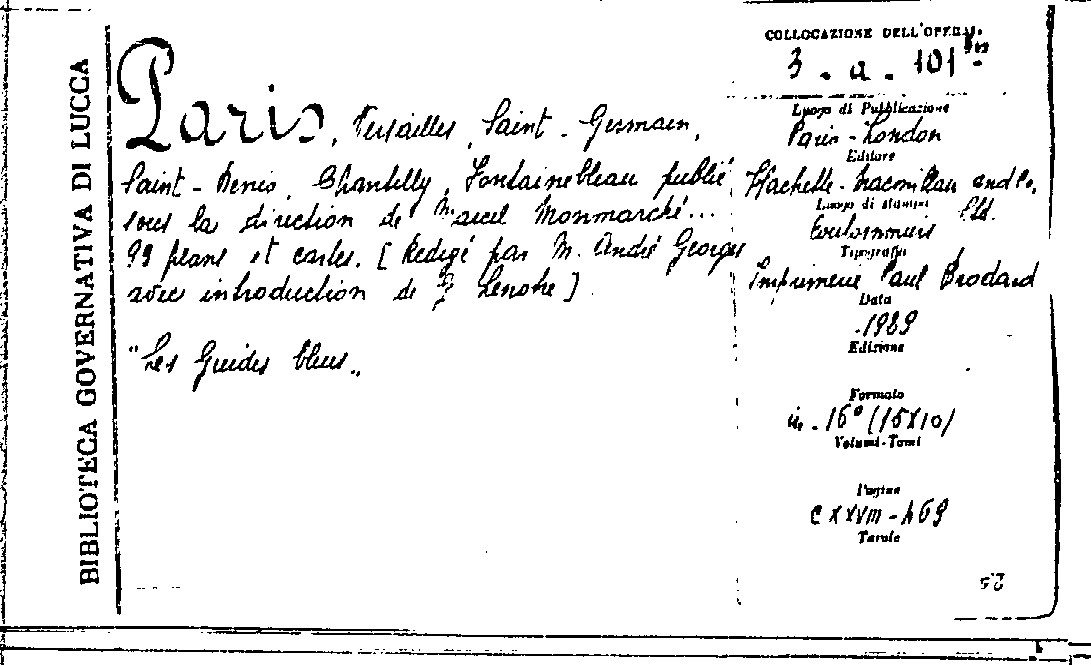 BIBLIOTECA GOVERNATIVA DI LUCCA
Paris, Versailles, Saint-Germain,
Saint-Denis, Chantilly, Fontainebleau publié
sous la direction de Marcel Monmarché...
99 plans et cartes. [Redigé par M. André Georges
avec introduction de G Lenotre]
"Les Guides bleus„
COLLOCAZIONE DELL'OPERA
3 - a - 101
Luogo di Pubblicazione
Paris - London
Editore
Hachette - Macmillan and Co,
Ltd.
Luogo di stampa
Coulommiers
Tipografia
Imprimerie Paul Brodard
Data
1929
Edizione
Formato
in - 16° (15x10)
Volumi-Tomi
Pagine
CXXVIII - 469
Tavole